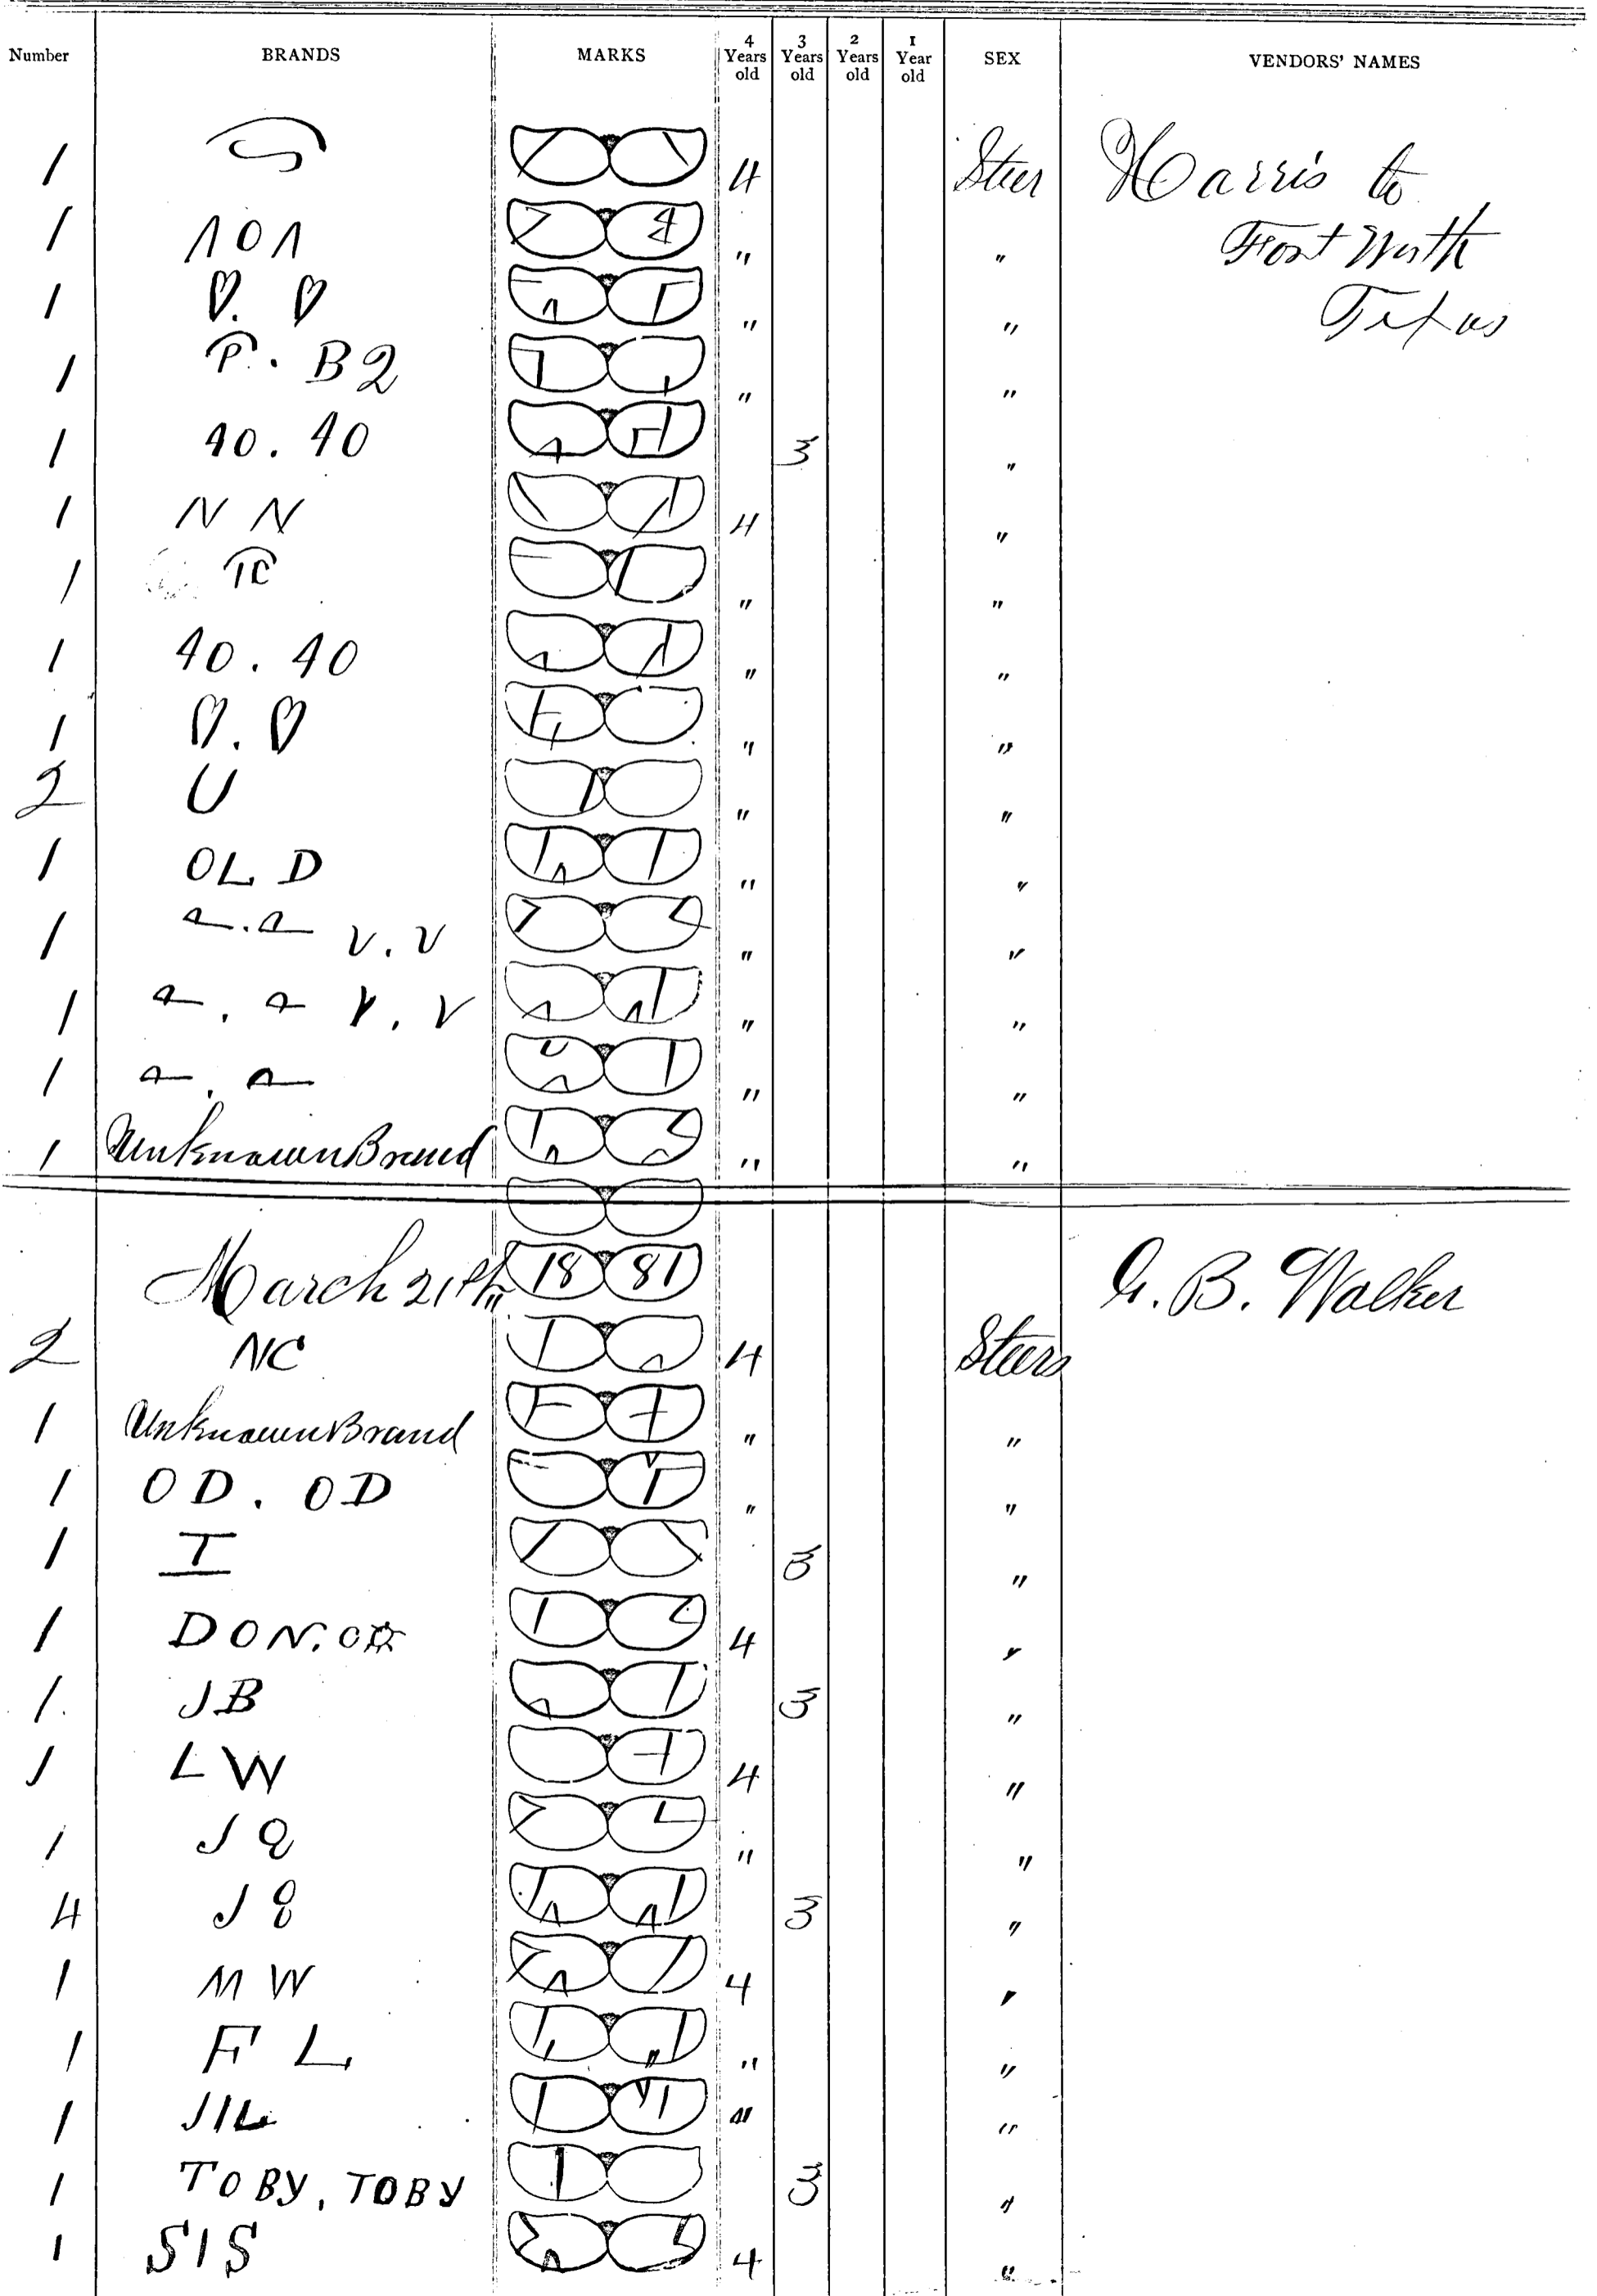 Number BRANDS MARKS 4 Years old 3 Years old 2 Years old 1 Year old SEX VENDORS' NAMES
1 4 Steer Harris to
1 101 " " Fort Worth
1 ♡. ♡ " " Texas
1 P. B2 " "
1 40. 40 3 "
1 N N 4 "
1 TC " "
1 40. 40 " "
1 ♡. ♡ " "
2 U " "
1 OL D " "
1 V. V " "
1 V. V " "
1 " "
1 Unknown Brand " "
March 21th 18 81 G. B. Walker
2 NC 4 Steers
1 Unknown Brand " "
1 OD. OD " "
1 T 3 "
1 DON. O☆ 4 "
1. JB 3 "
1 L W 4 "
1 J Q " "
4 J 8 3 "
1 M W 4 "
1 F L " "
1 JIL " "
1 TOBY, TOBY 3 "
1 SIS 4 "